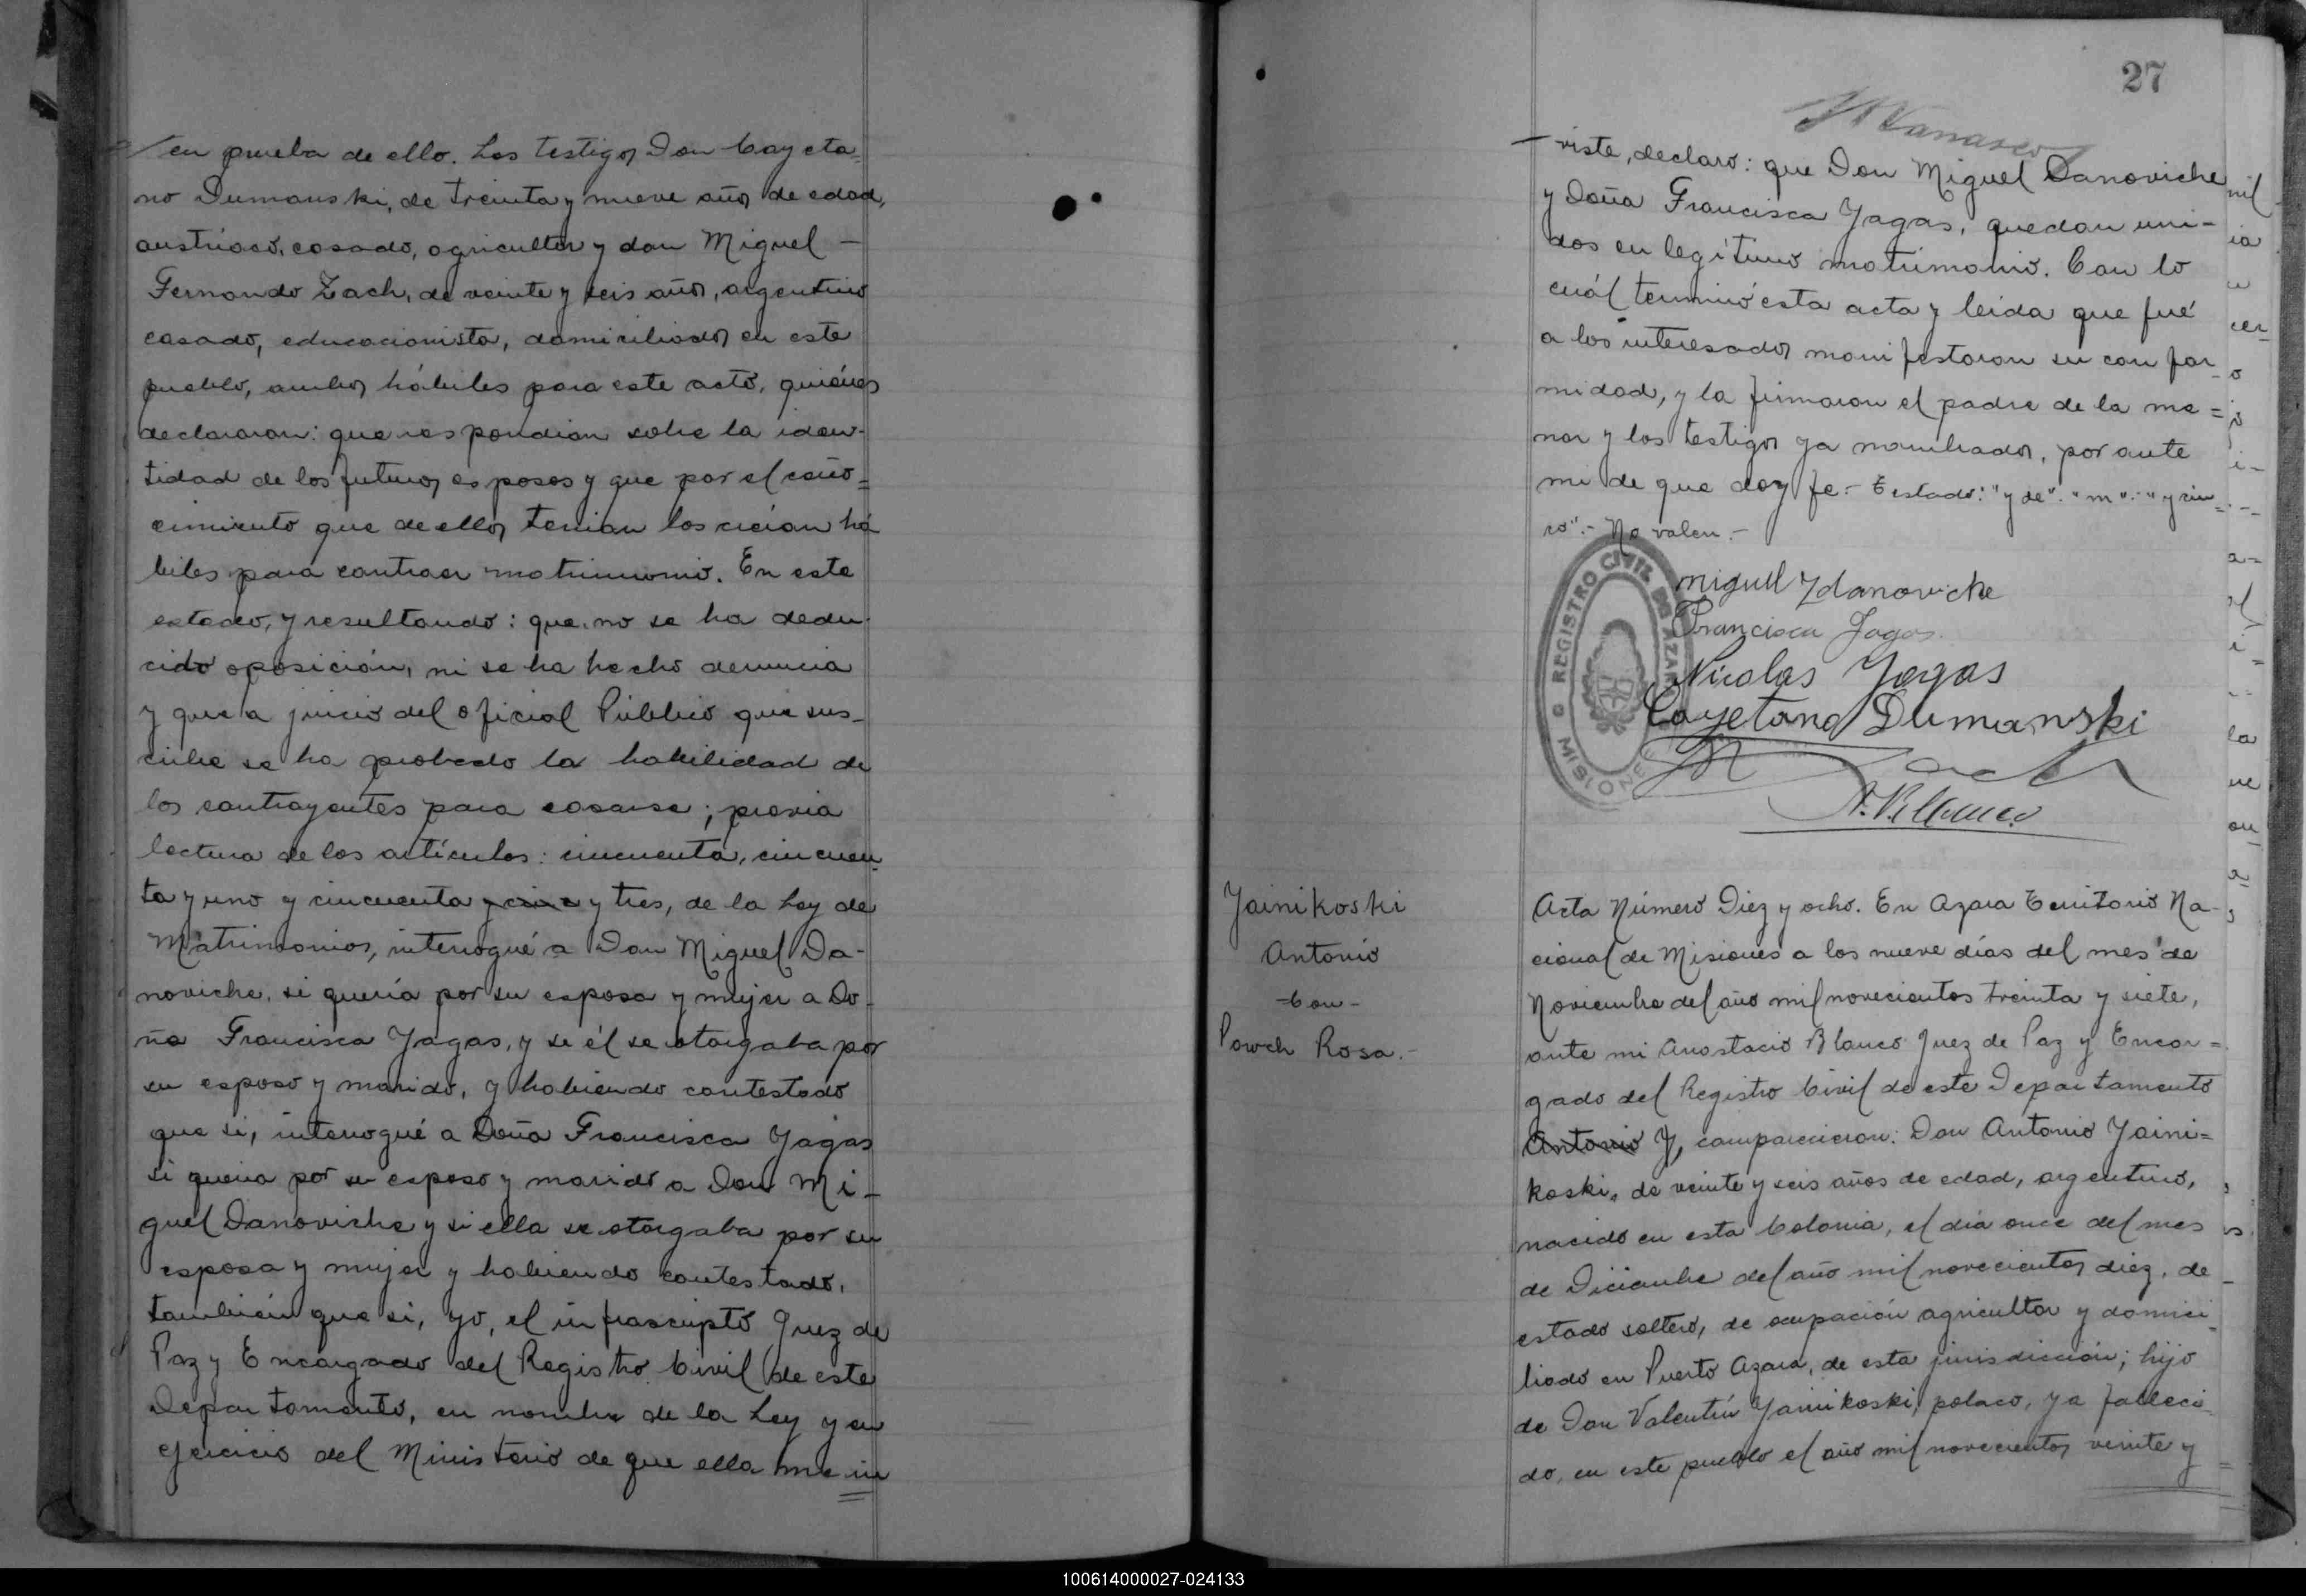 en prueba de ello. Los testigos Don Cayeta=
no Dumanski, de treinta y nueve años de edad,
austríaco, casado, agricultor y don Miguel –
Fernando Zach, de veinte y seis años, argentino
casado, educacionista, domiciliados en este
pueblo, ambos hábiles para este acto, quiénes
declararon: que respondian sobre la iden-
tidad de los futuros esposos y que por el cono=
cimiento que de ellos tenian los creían há
biles para contraer matrimonio. En este
estado, y resultando: que no se ha dedu-
cido oposición, ni se ha hecho denuncia
y que a juicio del oficial Público que sus-
cribe se ha probado la habilidad de
los contrayentes para casarse; previa
lectura de los artículos: cincuenta, cincuen
ta y uno y cincuenta y cinco y tres, de la Ley de
Matrimonios, interrogué a Don Miguel Da-
noviche, si quería por su esposa y mujer a Do-
ña Francisca Yagas, y si él se otorgaba por
su esposo y marido, y habiendo contestado
que si, interrogué a Doña Francisca Yagas
si queria por su esposo y marido a Don Mi-
guel Danoviche y si ella se otorgaba por su
esposa y mujer y habiendo contestado,
también que si, yo, el infrascripto Juez de
Paz y Encargado del Registro Civil de este
Departamento, en nombre de la Ley y en
ejercicio del Ministerio de que ella me in
27
viste, declaro: que Don Miguel Danoviche
y Doña Francisca Yagas, quedan uni-
dos en legítimo matrimonio. Con lo
cuál terminó esta acta y leída que fué
a los interesados manifestaron su confor
midad, y la firmaron el padre de la me=
nor y los testigos ya nombrados, por ante
mi de que doy fe.- Testado: "y de". "m". "y cin=
co".- No valen.-
REGISTRO CIVIL DE AZARA
MISIONES
miguel Zdanoviche
Francisca Jagas
Nicolas Yagas
Cayetano Dumanski
Zach
Yainikoski
Antonio
=Con-
Powch Rosa.-
Acta Número Diez y ocho. En Azara Territorio Na-
cional de Misiones a los nueve días del mes de
Noviembre del año mil novecientos treinta y siete,
ante mi Anastacio Blanco Juez de Paz y Encar=
gado del Registro Civil de este Departamento
Antonio Y, comparecieron: Don Antonio Yaini=
koski, de veinte y seis años de edad, argentino,
nacido en esta Colonia, el día once del mes
de Diciembre del año mil novecientos diez, de
estado soltero, de ocupación agricultor y domici
liado en Puerto Azara, de esta jurisdicción; hijo
de Don Valentín Yainikoski, polaco, ya falleci
do, en este pueblo el año mil novecientos veinte y
100614000027-024133